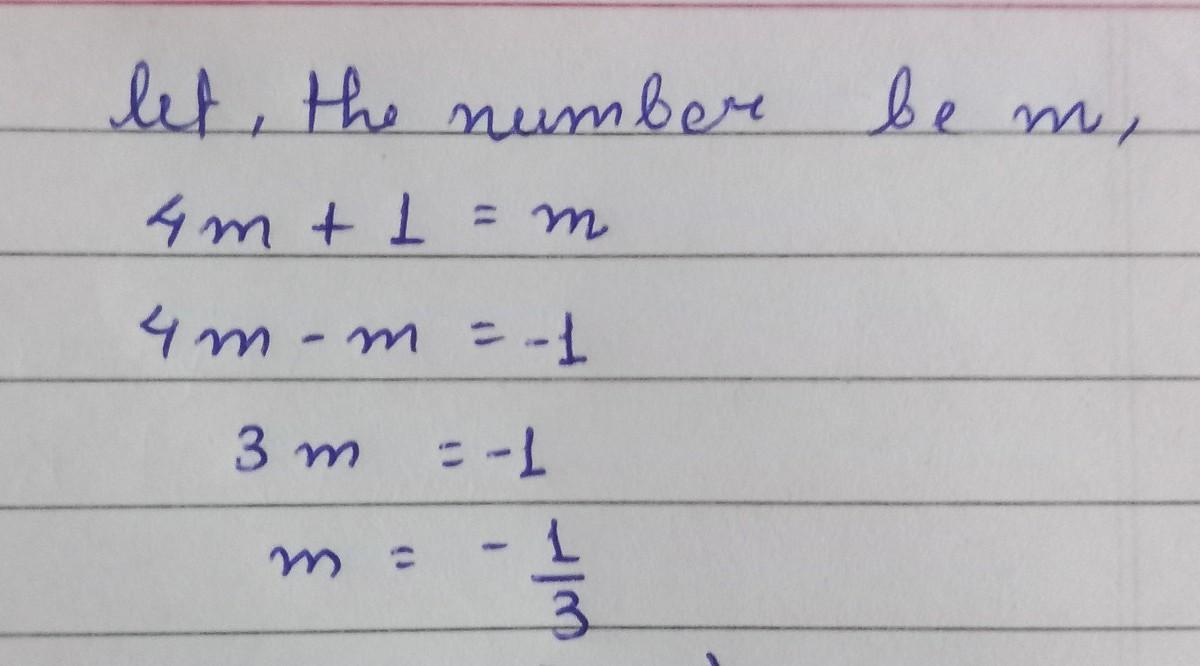 let, the number be m,
4m + 1 = m
4m - m = -1
3m = -1
m = - 1/3